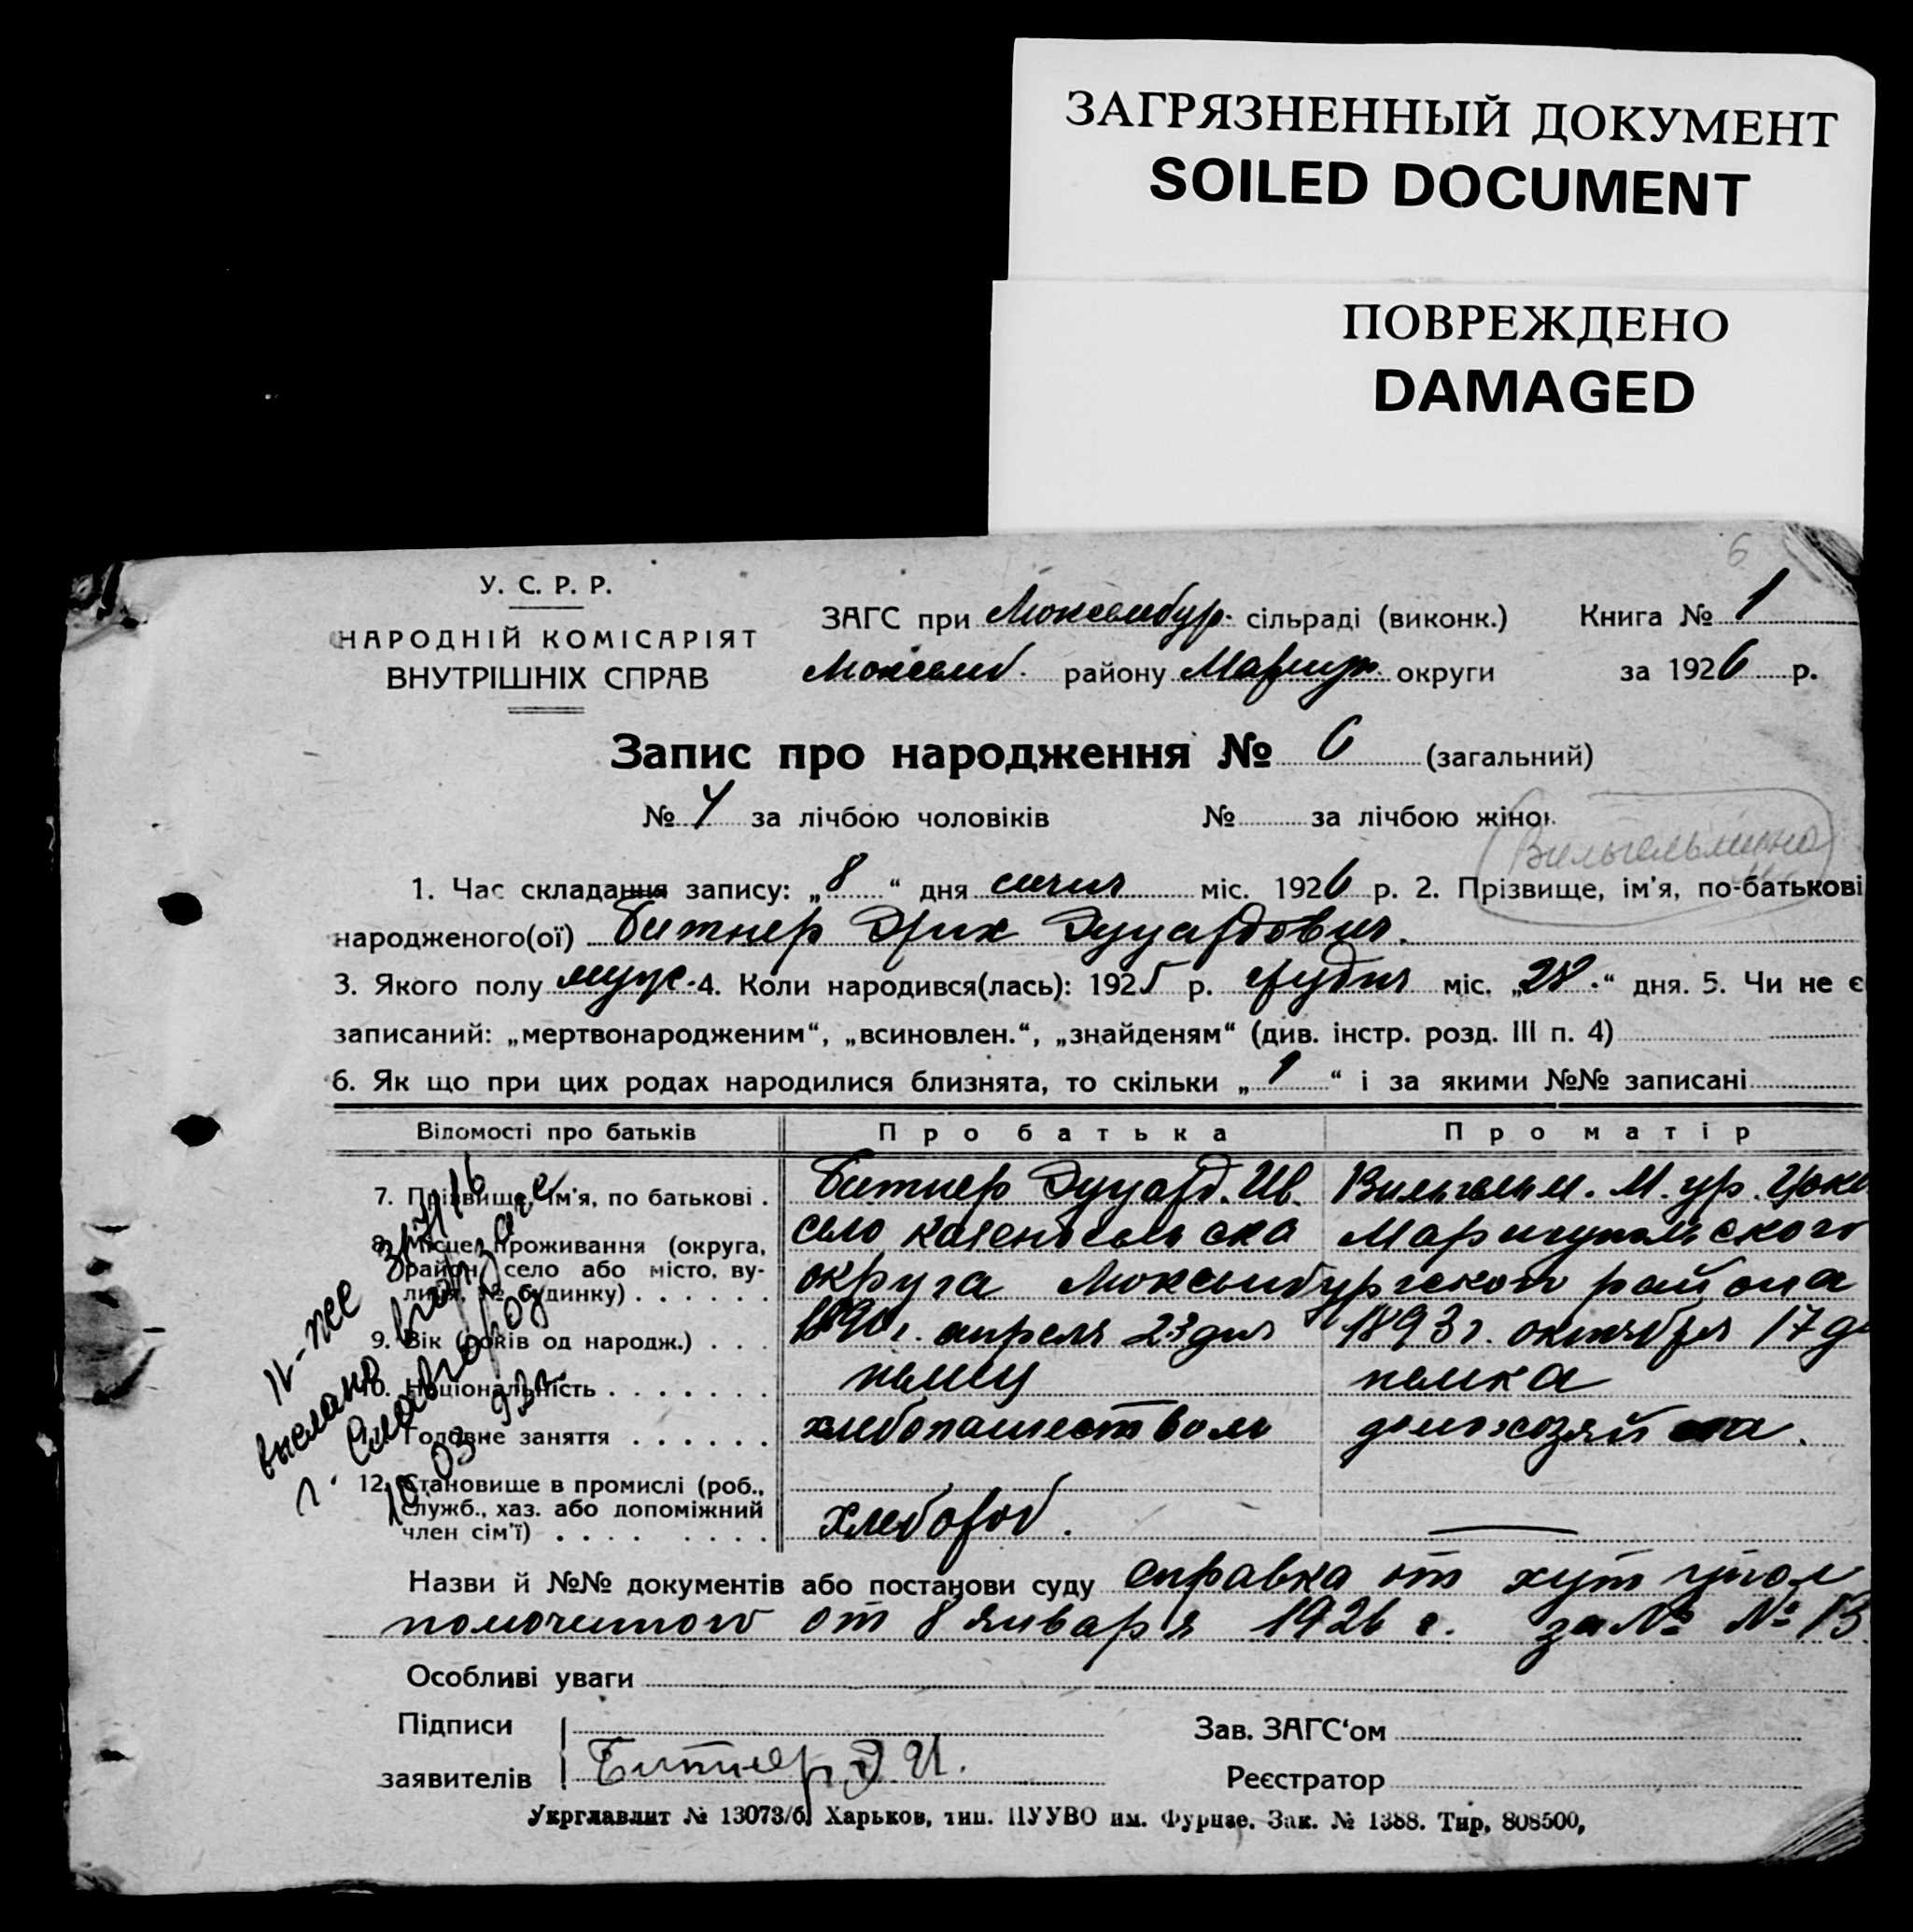 ЗАГРЯЗНЕННЫЙ ДОКУМЕНТ
SOILED DOCUMENT
ПОВРЕЖДЕНО
DAMAGED
6
У. С. Р. Р.
НАРОДНІЙ КОМІСАРІЯТ
ВНУТРІШНІХ СПРАВ
ЗАГС при Люксембур. сільраді (виконк.) Книга № 1
Люксемб. району Мариуп. округи за 1926 р.
Запис про народження № 6 (загальний)
№ 4 за лічбою чоловіків № за лічбою жінок
(Вильгельмина)
1. Час складання запису: „8“ дня січня міс. 1926 р. 2. Прізвище, ім'я, по-батькові
народженого(ої) Битнер Эрих Эдуардович.
3. Якого полу муж. 4. Коли народився(лась): 1925 р. грудня міс. „28.“ дня. 5. Чи не є
записаний: „мертвонародженим“, „всиновлен.“, „знайденям“ (див. інстр. розд. III п. 4)
6. Як що при цих родах народилися близнята, то скільки „1“ і за якими №№ записані
Відомості про батьків Про батька Про матір
7. Прізвище, ім'я, по батькові . Битнер Эдуард. Ив. Вильгельм. М. ур.
8. Місце проживання (округа, село Мариупольского
район, село або місто, ву-
лиця, № будинку) . . . . . . округа Люксембургского района
9. Вік (років од народж.) . . . 1890 г. апреля 23 дня 1893 г. октября 17 д
10. Національність . . . . . . . немец немка
Головне заняття . . . . . . хлебопашеством домохозяйка.
12. Становище в промислі (роб.,
служб., хаз. або допоміжний
член сім'ї) . . . . . . . . хлебороб. —
II-
выслано
г. Славгород
10 03
Назви й №№ документів або постанови суду справка от хут упол
номоченного от 8 января 1926 г. за № № 13
Особливі уваги
Підписи Зав. ЗАГС'ом
заявителів Битнер Э. И. Реєстратор
Укрглавлит № 13073/б. Харьков, тип. ПУУВО им. Фрунзе. Зак. № 1388. Тир. 808500,